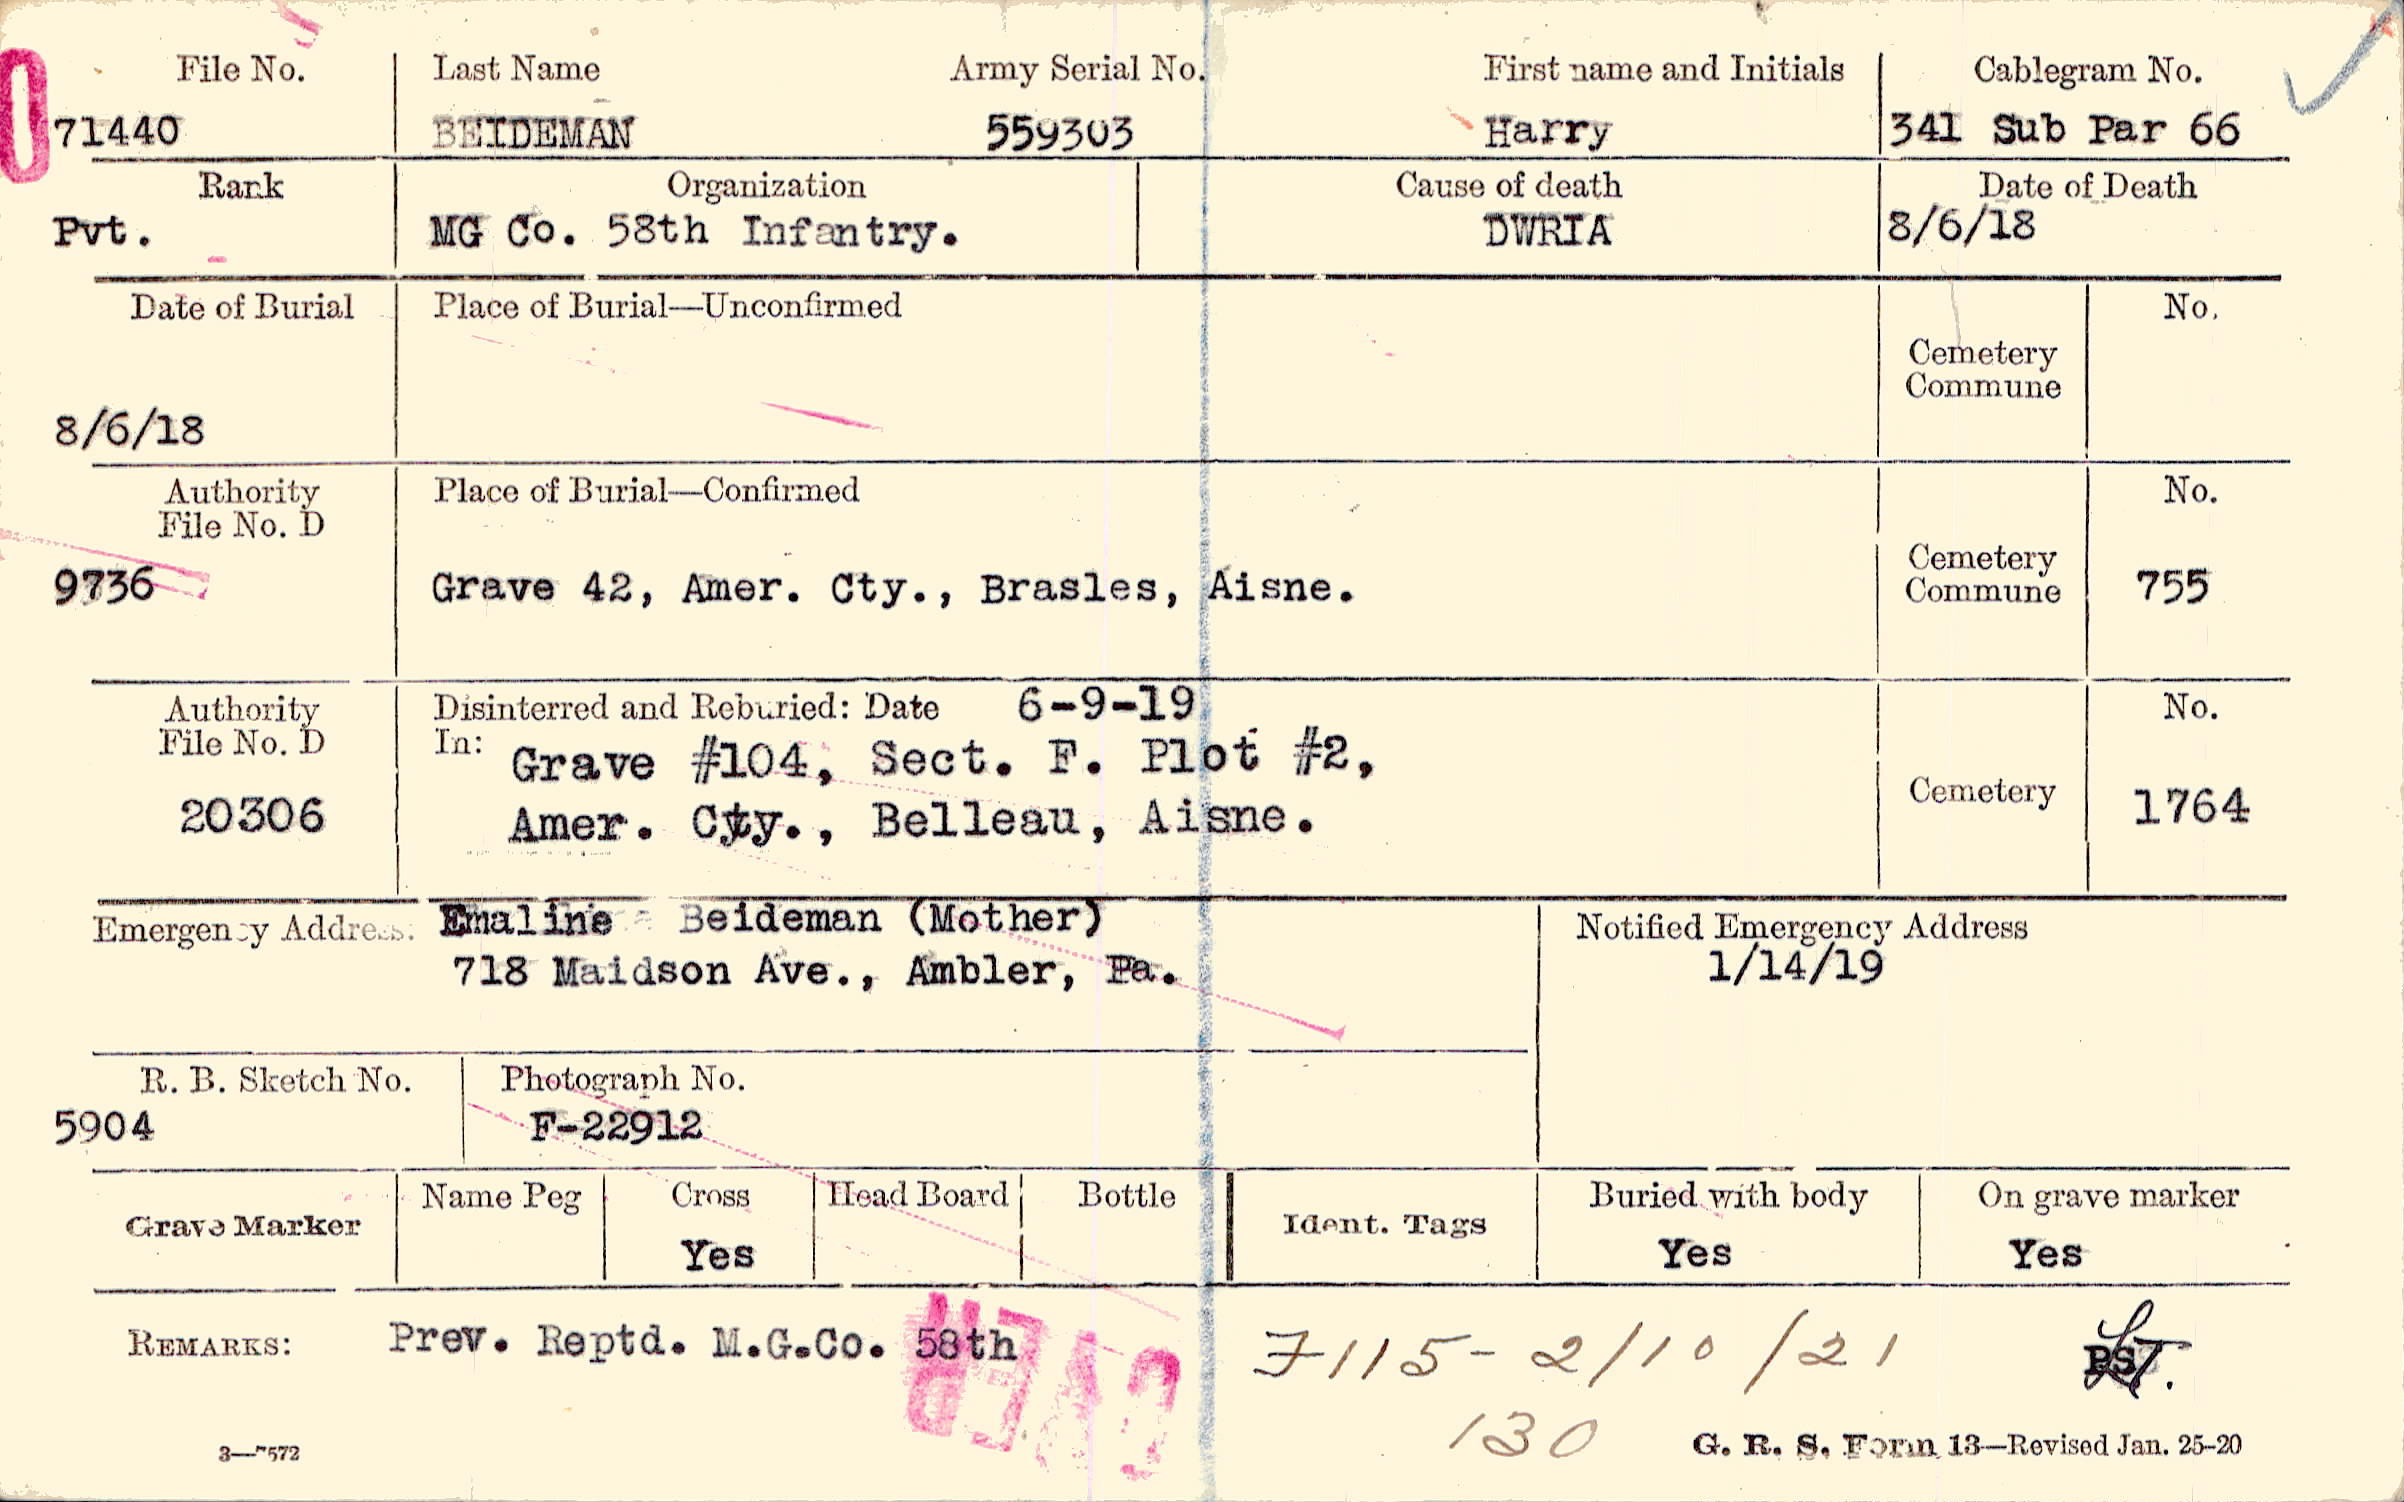 File No. Last Name Army Serial No. First name and Initials Cablegram No.
71440 BEIDEMAN 559303 Harry 341 Sub Par 66
Rank Organization Cause of death Date of Death
Pvt. MG Co. 58th Infantry. DWRIA 8/6/18
Date of Burial Place of Burial—Unconfirmed No.
Cemetery
Commune
8/6/18
Authority Place of Burial—Confirmed No.
File No. D
Cemetery
9736 Grave 42, Amer. Cty., Brasles, Aisne. Commune 755
Authority Disinterred and Reburied: Date 6-9-19 No.
File No. D In: Grave #104, Sect. F. Plot #2,
Cemetery
20306 Amer. Cty., Belleau, Aisne. 1764
Emergency Address: Emaline Beideman (Mother) Notified Emergency Address
718 Maidson Ave., Ambler, Pa. 1/14/19
R. B. Sketch No. Photograph No.
5904 F-22912
Name Peg Cross Head Board Bottle Buried with body On grave marker
Grave Marker Ident. Tags
Yes Yes Yes
REMARKS: Prev. Reptd. M.G.Co. 58th F115- 2/10/21
130
3—7572 G. R. S. Form 13—Revised Jan. 25-20